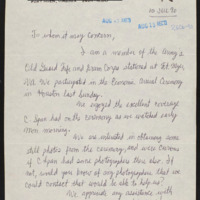 30 JUL 90
AUG
AUG 13 REC'D
To whom it may Concern,
I am a member of the Army's
Old Guard Fife and Drum Corps stationed at Ft. Myer,
VA. We participated in the Economic Summit Ceremony
in Houston last Sunday.
We enjoyed the excellent coverage
C Span had on the ceremony as we watched early
Mon morning.
We are interested in obtaining some
still photos from the ceremony, and were curious
if C Span had some photographers there also. If
not, would you know of any photographers that we
could contact that would be able to help us?
We appreciate any assistance